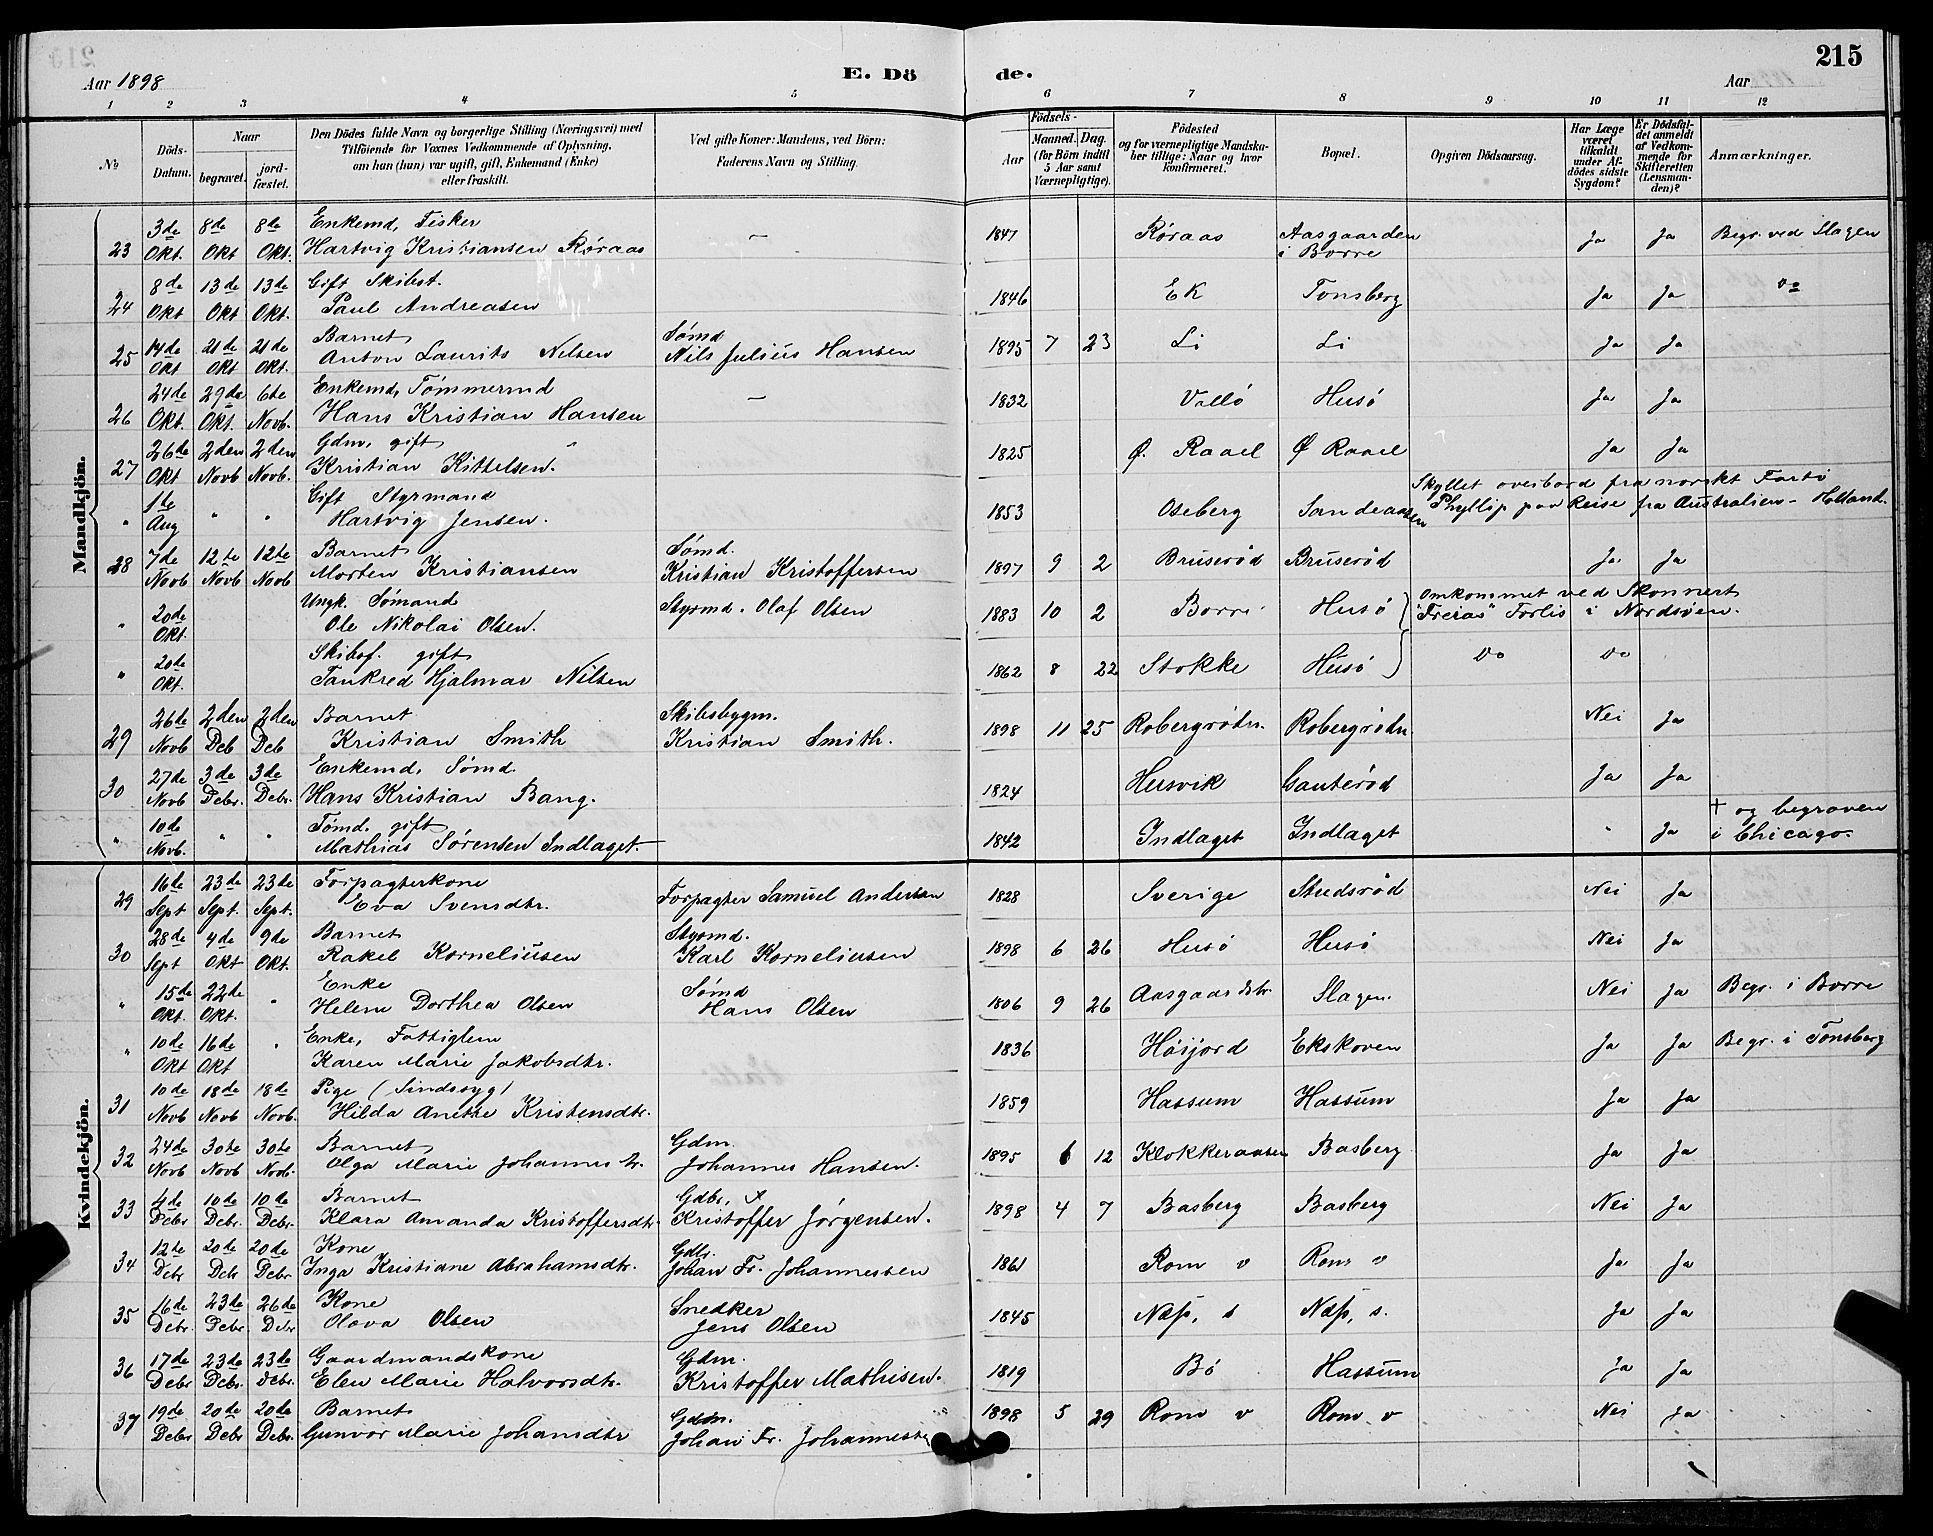 Aar 1898
E. Dö de.
Aar
215
1 2 3 4 5 6 7 8 9 10 11 12
No
Döds-Datum.
Naar
begravet. jordfæstet.
Den Dödes fulde Navn og borgerlige Stilling (Næringsvei) med
Tilföiende for Voxnes Vedkommende af Oplysning,
om han (hun) var ugift, gift, Enkemand (Enke)
eller fraskilt.
Ved gifte Koner: Mandens, ved Börn:
Faderens Navn og Stilling.
Födsels-
Aar
Maaned. Dag.
(for Börn indtil
5 Aar samt
Værnepligtige).
Födested
og for værnepligtige Mandskaber tillige: Naar og hvor
konfirmeret.
Bopæl.
Opgiven Dödsaarsag.
Har Læge
været
tilkaldt
under Afdödes sidste
Sygdom?
Er Dödsfaldet anmeldt
af Vedkommende for
Skifteretten
(Lensmanden)?
Anmærkninger.
Mandkjön.
3de 8de 8de Enkemd, Fisker
23 Okt. Okt Okt. Hartvig Kristiansen Røraas — 1847 Røraas Aasgaarden i Borre Ja Ja Begr. ved Slagen
8de 13de 13de Gift Skibst.
24 Okt Okt Okt. Paul Andreasen 1846 Ek Tonsberg Ja Ja Do
14de 21de 21de Barnet Sømd
25 Okt Okt Okt. Anton Laurits Nilsen Nils Julius Hansen 1895 7 23 Li Li Ja Ja
24de 29de 6te Enkemd, Tømmermd
26 Okt. Okt. Novb. Hans Kristian Hansen — 1832 Vallö Husö Ja Ja
26de 2den 2den Gdm, gift
27 Okt Novb Novb. Kristian Kittelsen. 1825 Ø. Raael Ø Raael Ja Ja
1ste Gift Styrmand
" Aug " " Hartvig Jensen. 1853 Oseberg Sandeaasen Skyllet overbord fra norskt Fartö
Phyllip paa Reise fra Australien - Holland.
7de 12te 12te Barnet Sømd.
28 Novb Novb Novb Morten Kristiansen Kristian Kristoffersen 1897 9 2 Bruserød Bruserød Ja Ja
20de Ungk. Sømand
" Okt. Ole Nikolai Olsen. Styrmd. Olaf Olsen 1883 10 2 Borre Husö Omkommet ved Skonnert
"Freias" Forlis i Nordsøen.
20de Skibsf. gift
" Okt. Tankred Hjalmar Nilsen 1862 8 22 Stokke Husö Do Do
26de 2den 2den Barnet Skibsbygm.
29 Novb Deb Deb Kristian Smith Kristian Smith. 1898 11 25 Robergrødn. Robergrødn. Nei Ja
27de 3de 3de Enkemd, Sømd.
30 Novb Debr. Debr. Hans Kristian Bang. 1824 Husvik Gauterød Ja Ja
10de Tømd. gift
" Novb. " " Mathias Sørensen Indlaget. 1842 Indlaget Indlaget " Ja † og begraven
i Chicago.
Kvindekjön.
16de 23de 23de Forpagterkone
29 Sept Sept. Sept. Eva Svensdtr. Forpagter Samuel Andersen 1828 Sverige Studsrød Nei Ja
28de 4de 9de Barnet Styrmd.
30 Sept Okt Okt. Rakel Korneliusen Karl Korneliusen 1898 6 26 Husö Husö Nei Ja
15de 22de Enke Sømd
" Okt. Okt. " Helene Dorthea Olsen Hans Olsen 1806 9 26 Aasgaardstr. Slagen. Nei Ja Begr. i Borre
10de 16de Enke, Fattiglem
" Okt Okt " Karen Marie Jakobsdtr. 1836 Höijord Ekskoven Ja Ja Begr. i Tonsberg
10de 18de 18de Pige (Sindssyg)
31 Novb Novb Novb. Hilda Anette Kristensdtr. 1859 Hassum Hassum Ja Ja
24de 30te 30te Barnet Gdm.
32 Novb Novb Novb. Olga Marie Johannesdtr. Johannes Hansen. 1895 6 12 Klokkeraasen Basberg Ja Ja
4de 10de 10de Barnet Gdbr.
33 Debr Debr. Debr. Klara Amanda Kristoffersdtr. Kristoffer Jørgensen. 1898 4 7 Basberg Basberg Nei Ja
12te 20de 20de Kone Gdbr.
34 Debr Debr Debr Inga Kristiane Abrahamsdtr. Johan Fr. Johannessen 1861 Rom v Rom v Ja Ja
16de 23de 26de Kone Snedker
35 Debr. Debr. Debr Olava Olsen Jens Olsen 1845 Næss, s Næss, s. Ja Ja
17de 23de 23de Gaardmandskone Gdm.
36 Debr Debr. Debr. Elen Marie Halvorsdtr. Kristoffer Mathisen. 1819 Bö Hassum Ja Ja
19de 20de 20de Barnet Gdm.
37 Debr Debr Debr. Gunvor Marie Johansdtr Johan Fr. Johannesse 1898 5 29 Rom v Rom v Nei Ja